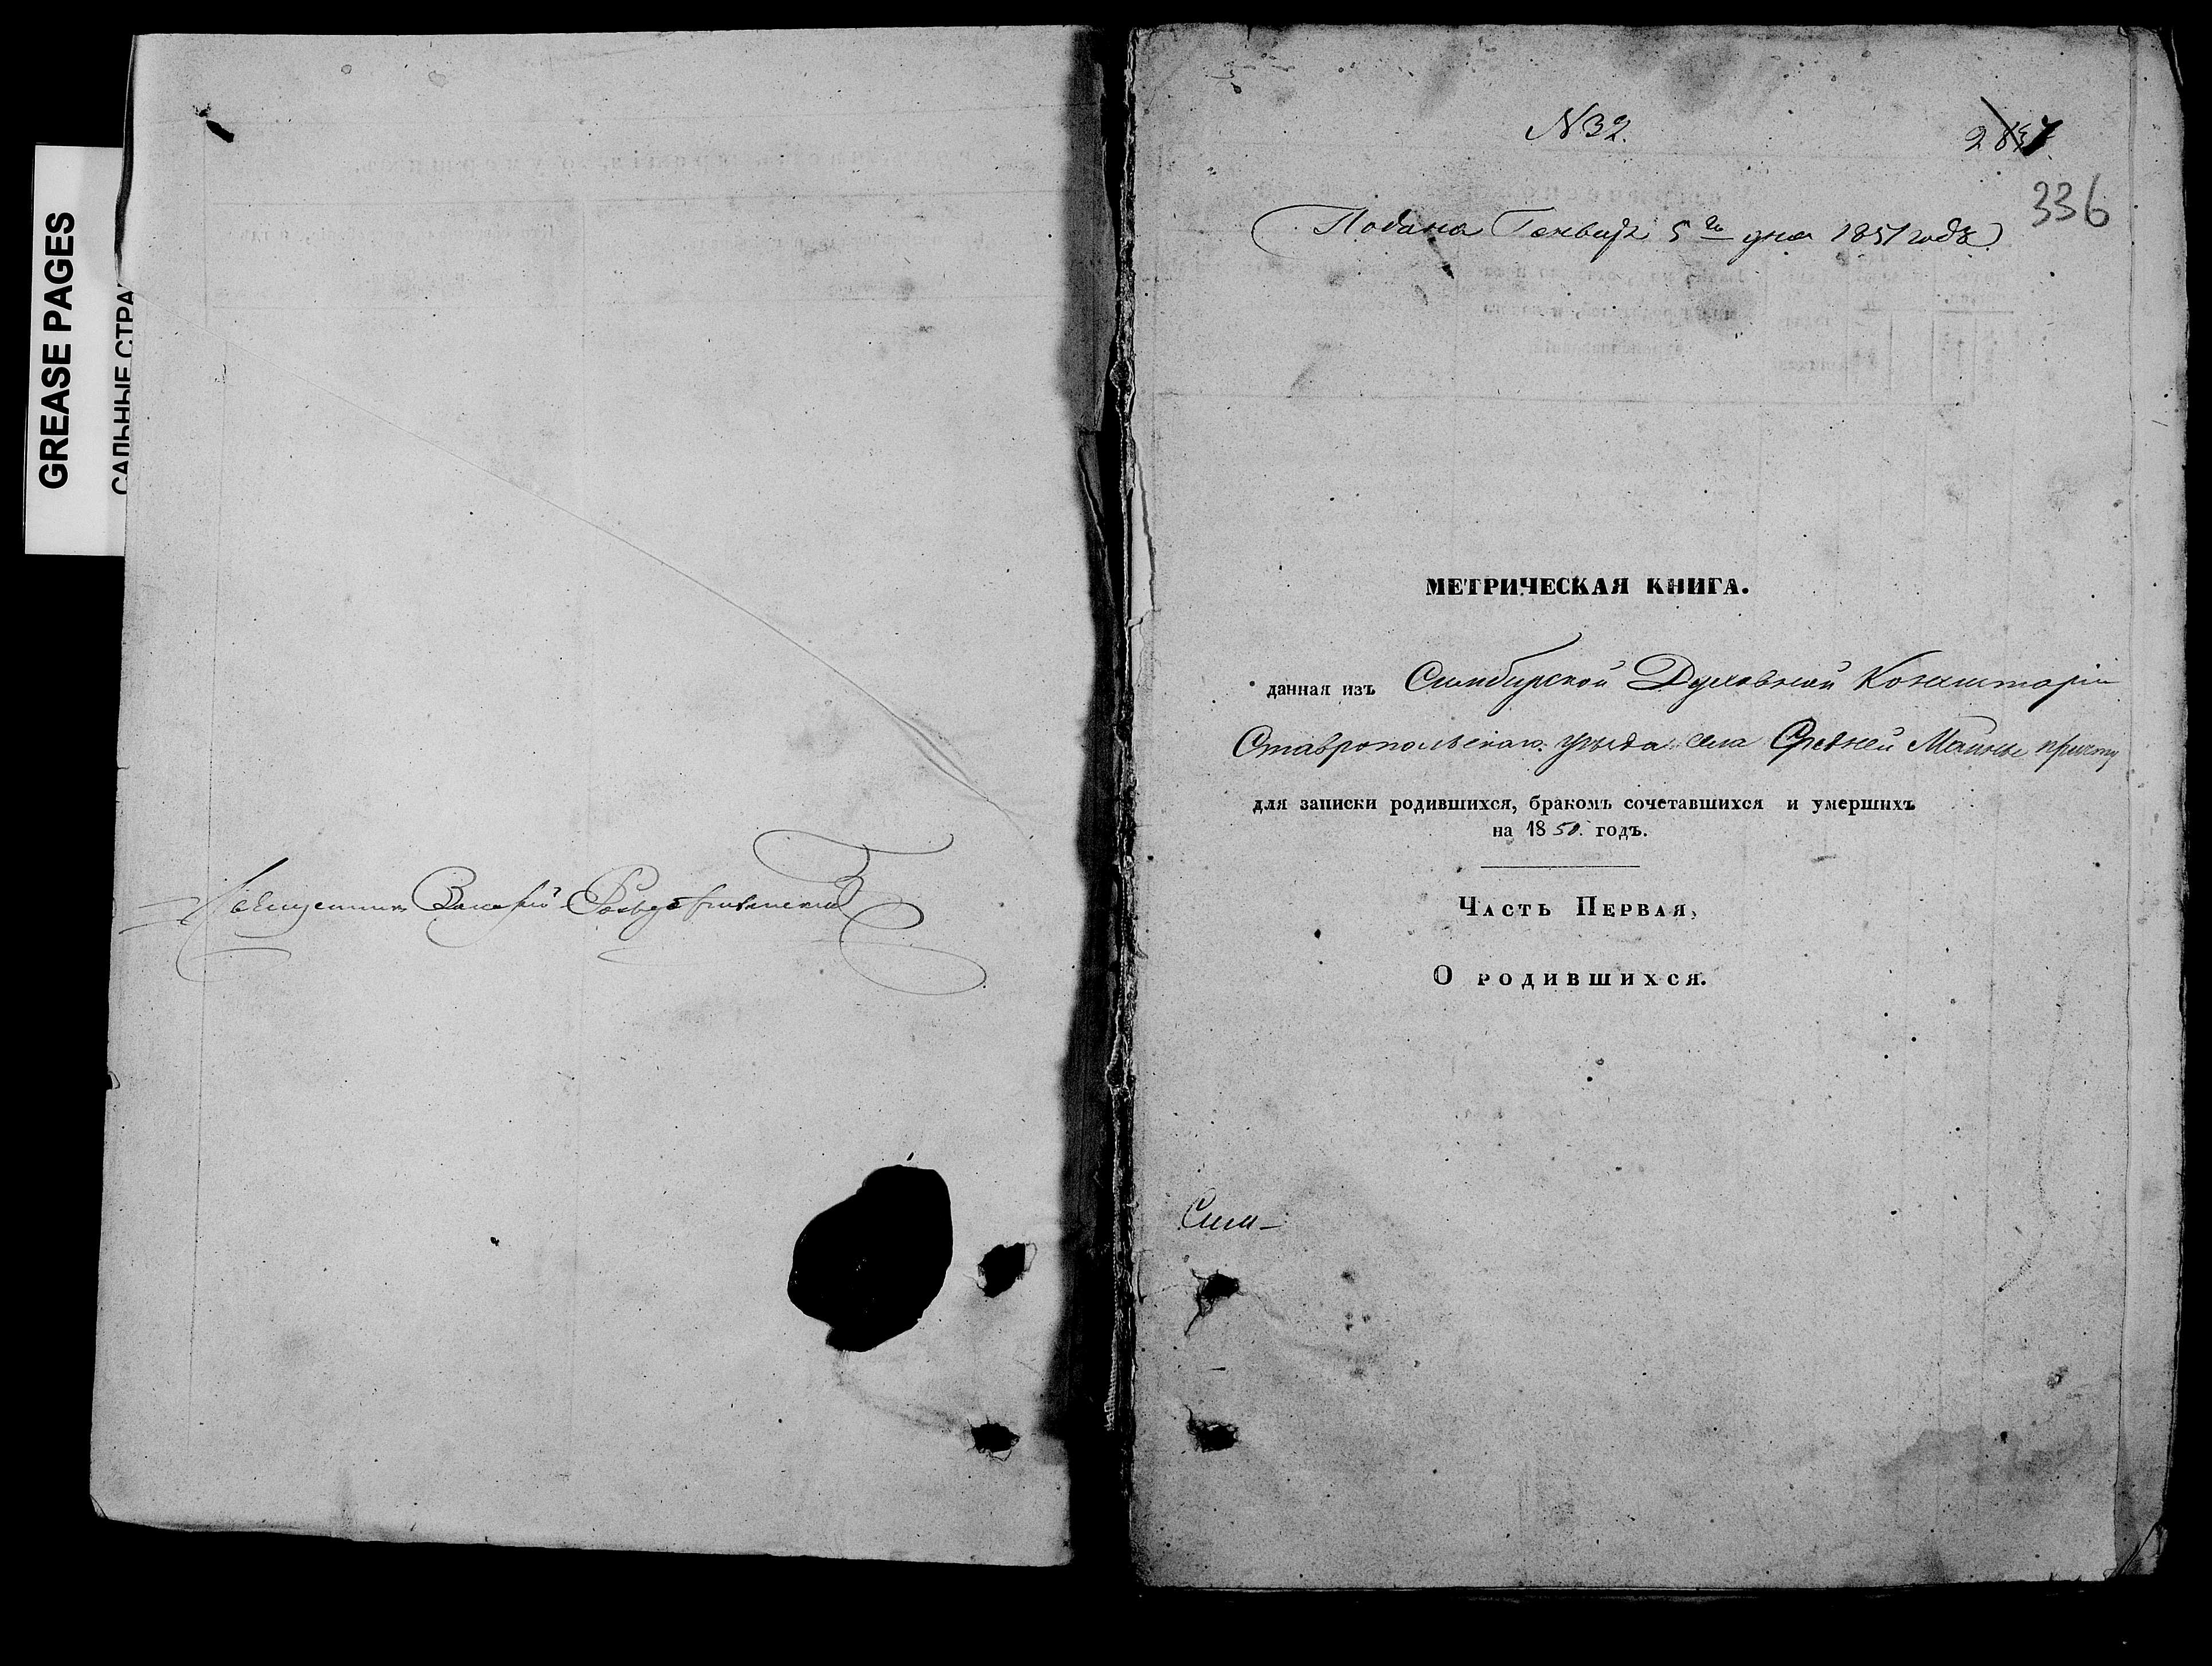 GREASE PAGES
САЛЬНЫЕ СТРА
Священникъ
N 32.
336
Подана Генваря 5го дня 1851 года
МЕТРИЧЕСКАЯ КНИГА.
данная изъ Симбирской Духовной Консисторіи
Ставропольскаго уѣзда села Средней Майны причту
для записки родившихся, бракомъ сочетавшихся и умершихъ
на 1850. годъ.
Часть Первая,
О родившихся.
Сим-